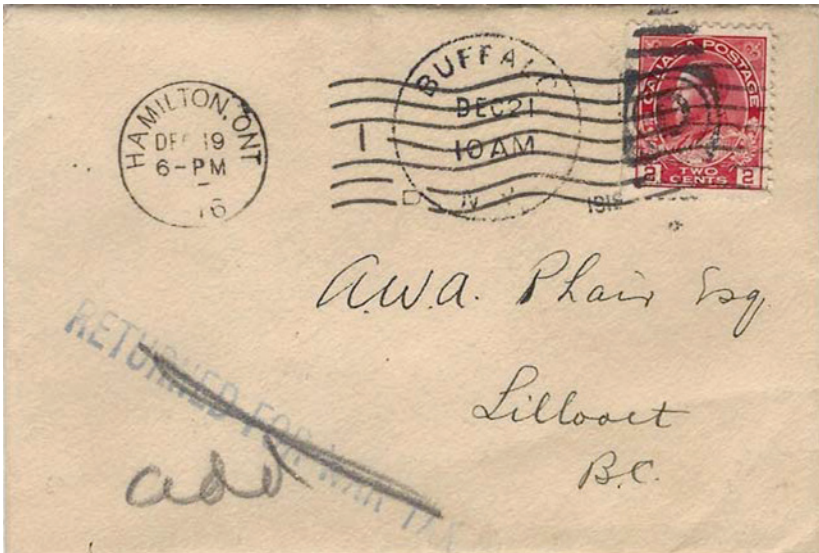 HAMILTON, ONT
DEC 19
6-PM
16
BUFFALO
DEC 21
10 AM
N.Y.
CANADA POSTAGE
2 TWO CENTS 2
A.W.A. Phair Esq
Lillooet
B.C.
RETURNED FOR WAR TAX
add